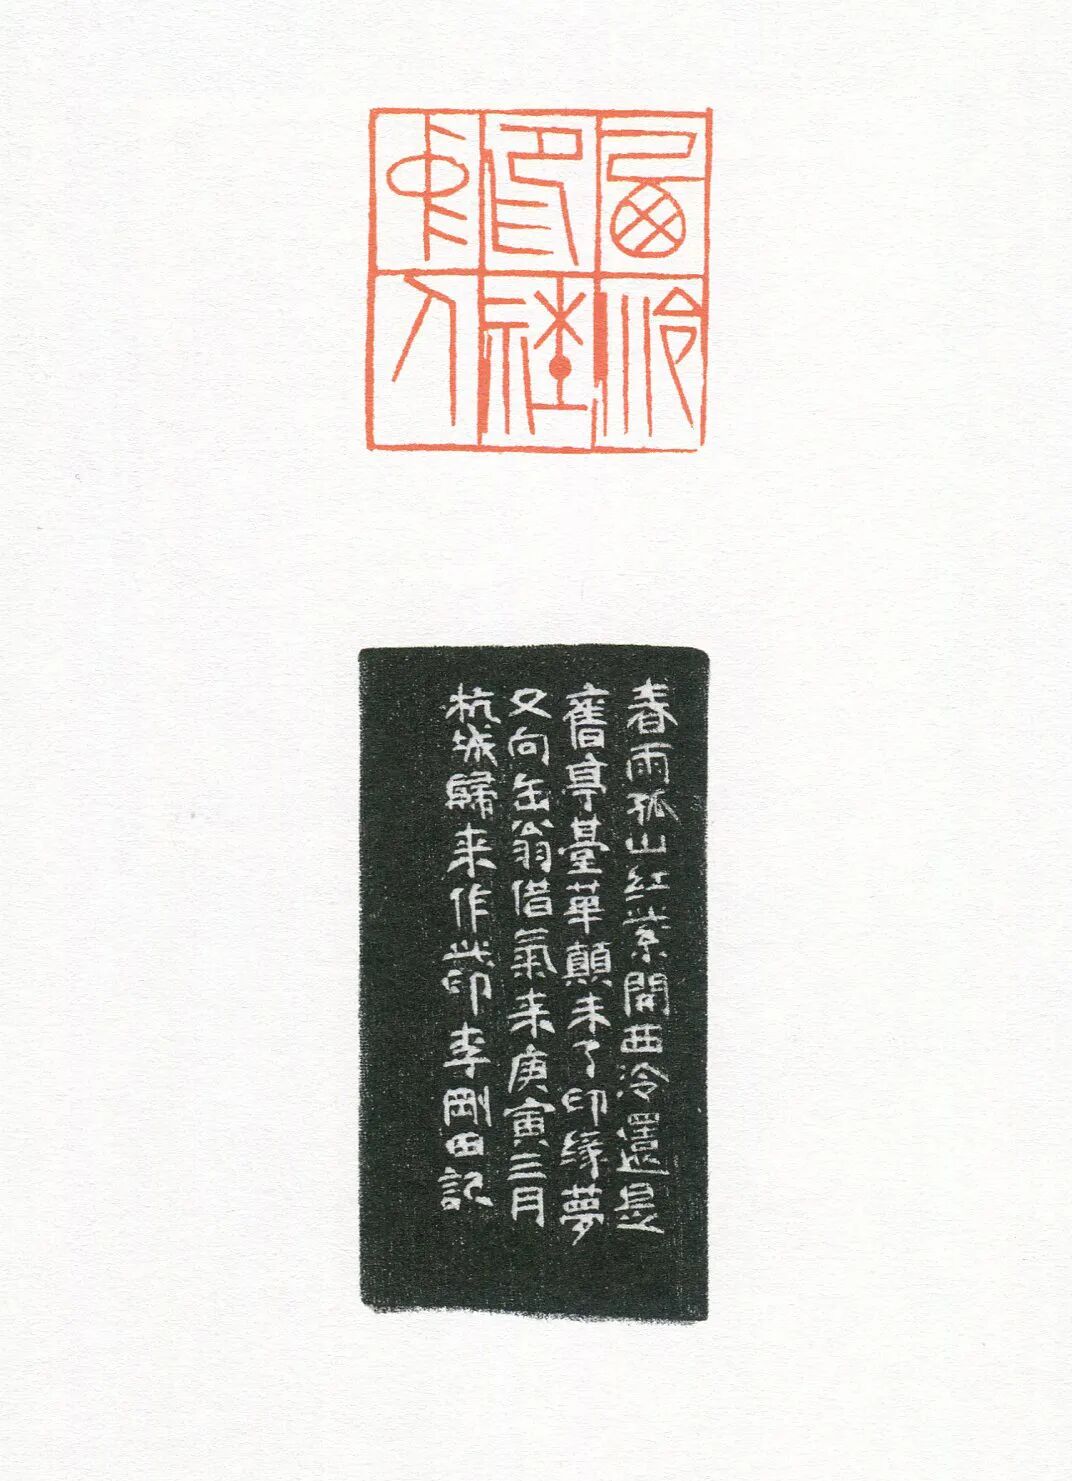 西泠
印社
中人
春雨孤山红紫開西泠還是
舊亭臺華顛未了印緣夢
又向缶翁借氣来庚寅三月
杭城歸来作此印李剛田記